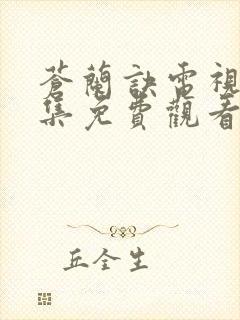 蒼蘭訣電視
集免費觀看
丘全生